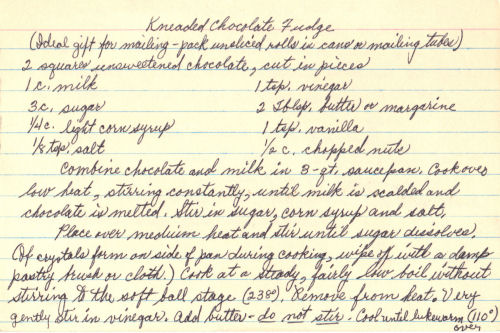 Kneaded Chocolate Fudge
(Ideal gift for mailing - pack unsliced rolls in cans or mailing tubes)
2 squares unsweetened chocolate, cut in pieces
1 c. milk 1 tsp. vinegar
3 c. sugar 2 Tblsp. butter or margarine
1/4 c. light corn syrup 1 tsp. vanilla
1/8 tsp. salt 1/2 c. chopped nuts
Combine chocolate and milk in 3-qt. saucepan. Cook over
low heat, stirring constantly, until milk is scalded and
chocolate is melted. Stir in sugar, corn syrup and salt.
Place over medium heat and stir until sugar dissolves.
(If crystals form on side of pan during cooking, wipe off with a damp
pastry brush or cloth.) Cook at a steady, fairly low boil without
stirring to the soft ball stage (238°). Remove from heat. Very
gently stir in vinegar. Add butter - do not stir. Cool until lukewarm (110°)
over